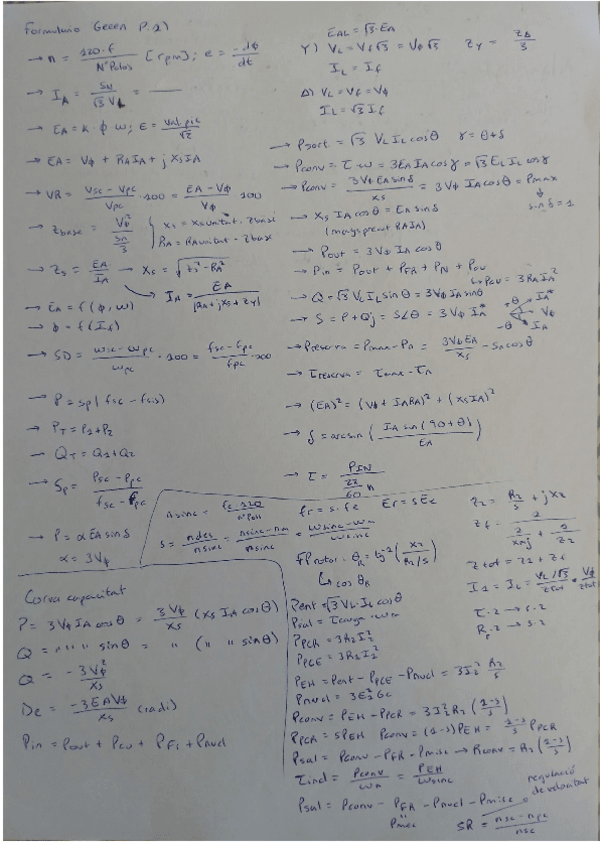 Formulario Geeen P.1)
→ n = 120·f / NºPolos [rpm]; e = -dφ / dt
→ I_A = S_N / √3 V_L =
→ E_A = K·φ·ω; E = Val pic / √2
→ E_A = Vφ + R_A I_A + j X_S I_A
→ VR = (V_SC - V_PC) / V_PC · 100 = (E_A - Vφ) / Vφ · 100
→ Z_base = Vφ² / (S_n / 3) { X_S = X_S unitat · Z base
R_A = R_A unitat · Z base
→ Z_S = E_A / I_A → X_S = √(Z_S² - R_A²)
→ I_A = E_A / |R_A + jX_S + Z_Y|
→ E_A = f(φ, ω)
→ φ = f(I_f)
→ SD = (ω_SC - ω_PC) / ω_PC · 100 = (f_SC - f_PC) / f_PC · 100
→ P = Sp(f_SC - f_SIS)
→ P_T = P_1 + P_2
→ Q_T = Q_1 + Q_2
→ S_P = (P_SC - P_PC) / (f_SC - f_PC)
→ P = α E_A sin δ
α = 3Vφ
E_AL = √3·E_A
Y) V_L = V_f √3 = Vφ √3 Z_Y = Z_Δ / 3
I_L = I_f
Δ) V_L = V_f = Vφ
I_L = √3 I_f
→ P_sort = √3 V_L I_L cos θ γ = θ + δ
→ P_conv = τ·ω = 3 E_A I_A cos γ = √3 E_L I_L cos γ
→ P_conv = 3Vφ E_A sin δ / X_S = 3Vφ I_A cos θ = P max
↓
sin δ = 1
→ X_S I_A cos θ = E_A sin δ
(menyspreant R_A I_A)
→ P_out = 3Vφ I_A cos θ
→ P_in = P_out + P_FR + P_N + P_cu
↳ P_cu = 3 R_A I_A²
→ Q = √3 V_L I_L sin θ = 3Vφ I_A sin θ
→ S = P + Qj = S∠θ = 3Vφ I_A*
+θ I_A*
Vφ
-θ I_A
→ P reserva = P max - P_n = 3Vφ E_A / X_S - S_n cos θ
→ τ reserva = τ max - τ_n
→ (E_A)² = (Vφ + I_A R_A)² + (X_S I_A)²
→ δ = arcsin (I_A sin(90 + θ) / E_A)
→ τ = P_IN / (2π / 60 n)
n sinc = f_e · 120 / nº Pols
f_r = s·f_e E_r = s E_e
s = n des / n sinc = (n sinc - n_m) / n sinc = (ω sinc - ω_m) / ω sinc
FP rotor - θ_R = tg⁻¹ (X_2 / R_2/s)
↳ cos θ_R
Z_2 = R_2 / s + j X_2
Z_f = 1 / (1 / X_m j + 1 / Z_2)
Z tot = Z_1 + Z_f
I_1 = I_L = V_L/√3 / Z tot = Vφ / Z tot
τ·2 → s·2
R_2·2 → s·2
P ent = √3 V_L · I_L cos θ
P sal = τ carga · ω_m
P_PCR = 3 R_2 I_2²
P_PCE = 3 R_1 I_1²
P_EH = P ent - P_PCE - P nucl = 3 I_2² R_2 / s
P nucl = 3 E_1² G_c
P conv = P_EH - P_PCR = 3 I_2² R_2 (1-s / s)
P_PCR = s P_EH P conv = (1-s) P_EH = 1-s / s P_PCR
P sal = P conv - P_FR - P misc → R conv = R_2 (1-s / s)
τ ind = P conv / ω_m = P_EH / ω sinc
P sal = P conv - P_FR - P nucl - P misc
P mec
regulació de velocitat
SR = (n_SC - n_PC) / n_SC
Corva capacitat
P = 3Vφ I_A cos θ = 3Vφ / X_S (X_S I_A cos θ)
Q = " " " sin θ = " (" " sin θ)
Q = -3Vφ² / X_S
D_E = -3 E_A Vφ / X_S (radi)
P in = P out + P cu + P Fi + P nucl